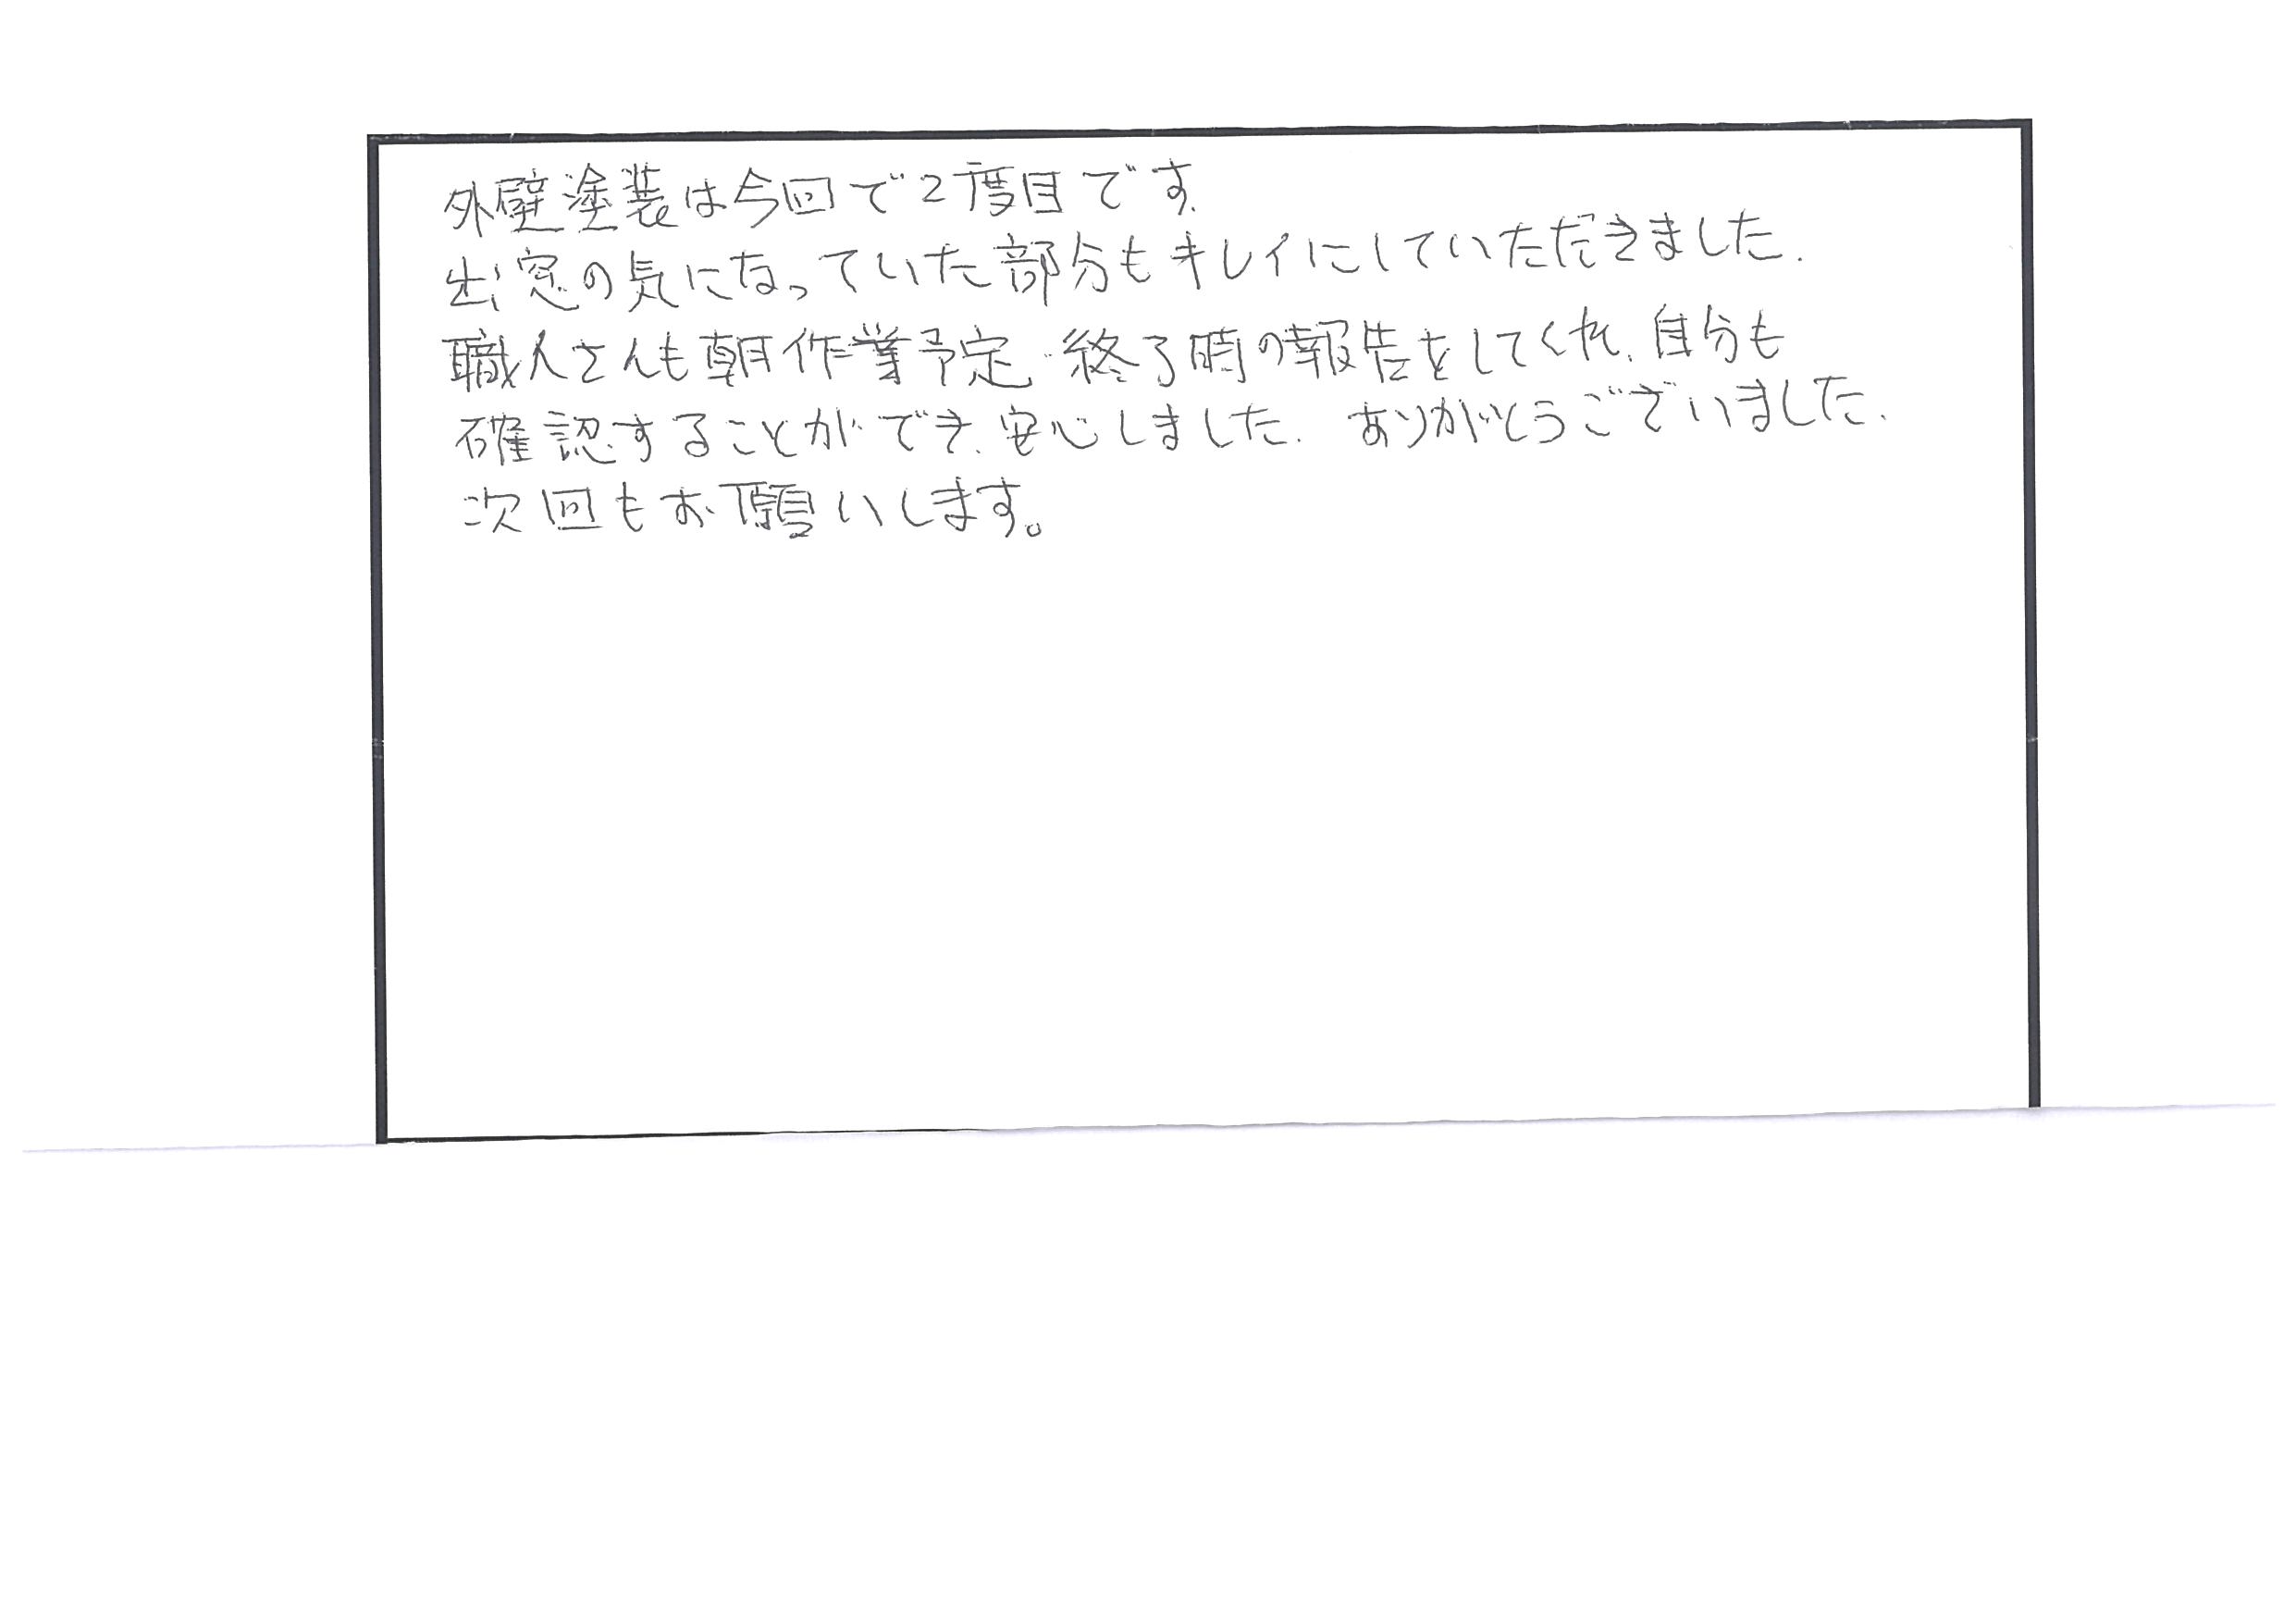 外壁塗装は今回で2度目です.
出窓の気になっていた部分もキレイにしていただきました.
職人さんも朝作業予定・終了時の報告をしてくれ、自分も
確認することができ、安心しました. ありがとうございました.
次回もお願いします。